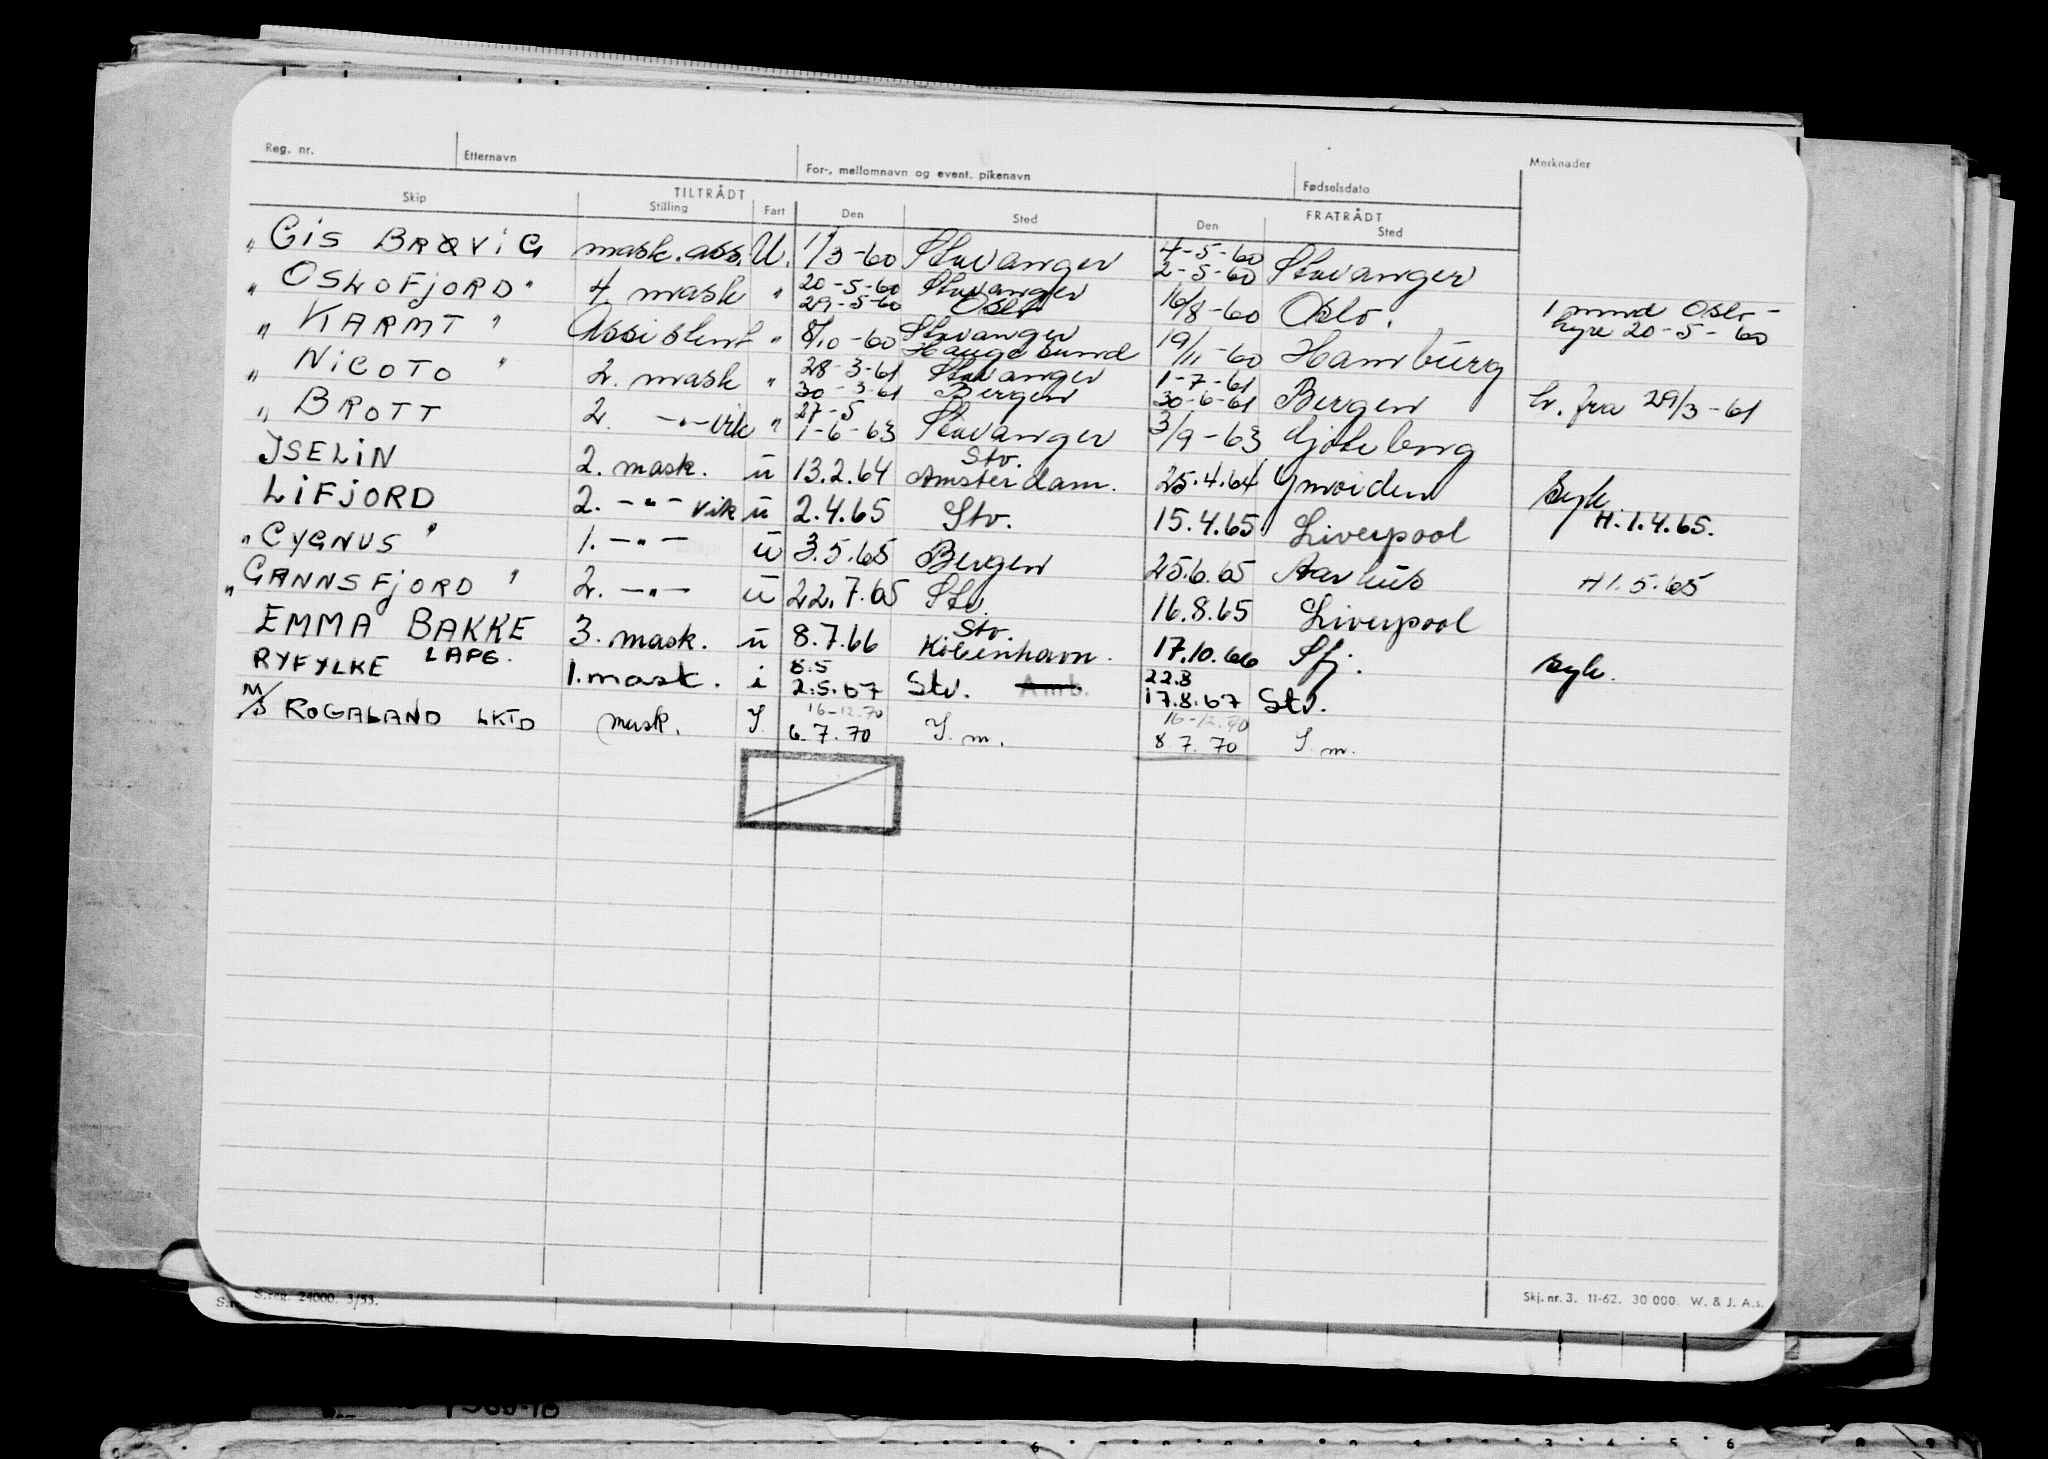 Reg. nr. Etternavn For-, mellomnavn og event. pikenavn Fødselsdato Merknader
TILTRÅDT FRATRÅDT
Skip Stilling Fart Den Sted Den Sted
" GIS BRØVIG mask. ass. U. 1/3-60 Stavanger 4-5-60 2-5-60 Stavanger
" OSLOFJORD" 4 mask " 20-5-60 Stavanger 29-5-60 Oslo 16/8-60 Oslo. 1 mnd Oslo - hyre 20-5-60
" KARMT " Assistent " 8/10-60 Stavanger Haugesund 19/11-60 Hamburg
" NICOTO " 2. mask " 28-3-61 Stavanger 30-3-61 Bergen 1-7-61 30-6-61 Bergen h. fra 29/3-61
" BROTT 2. -"- vik " 27-5 1-6-63 Stavanger 3/9-63 Gøteborg
ISELIN 2. mask. u 13.2.64 Stv. Amsterdam. 25.4.64 Ymuiden Syk
LIFJORD 2. -"- vik u 2.4.65 Stv. 15.4.65 Liverpool H. 1.4.65.
" CYGNUS " 1. -"- u 3.5.65 Bergen 25.6.65 Aarhus H 1.5.65
" GANNSFJORD " 2. -"- u 22.7.65 Stv. 16.8.65 Liverpool
EMMA BAKKE 3. mask. u 8.7.66 Stv. København. 17.10.66 Sfj. syk.
RYFYLKE LAPG. 1. mask. i 8.5 2.5.67 Stv. Amb. 22.8 17.8.67 Stv.
M/S ROGALAND LKTD mask. I. 16-12.70 6.7.70 I. m. 16-12.70 8 7. 70 I. m.
S.reg. 24000. 3/53.
Skj. nr. 3. 11-62. 30 000. W. & J. A.s.